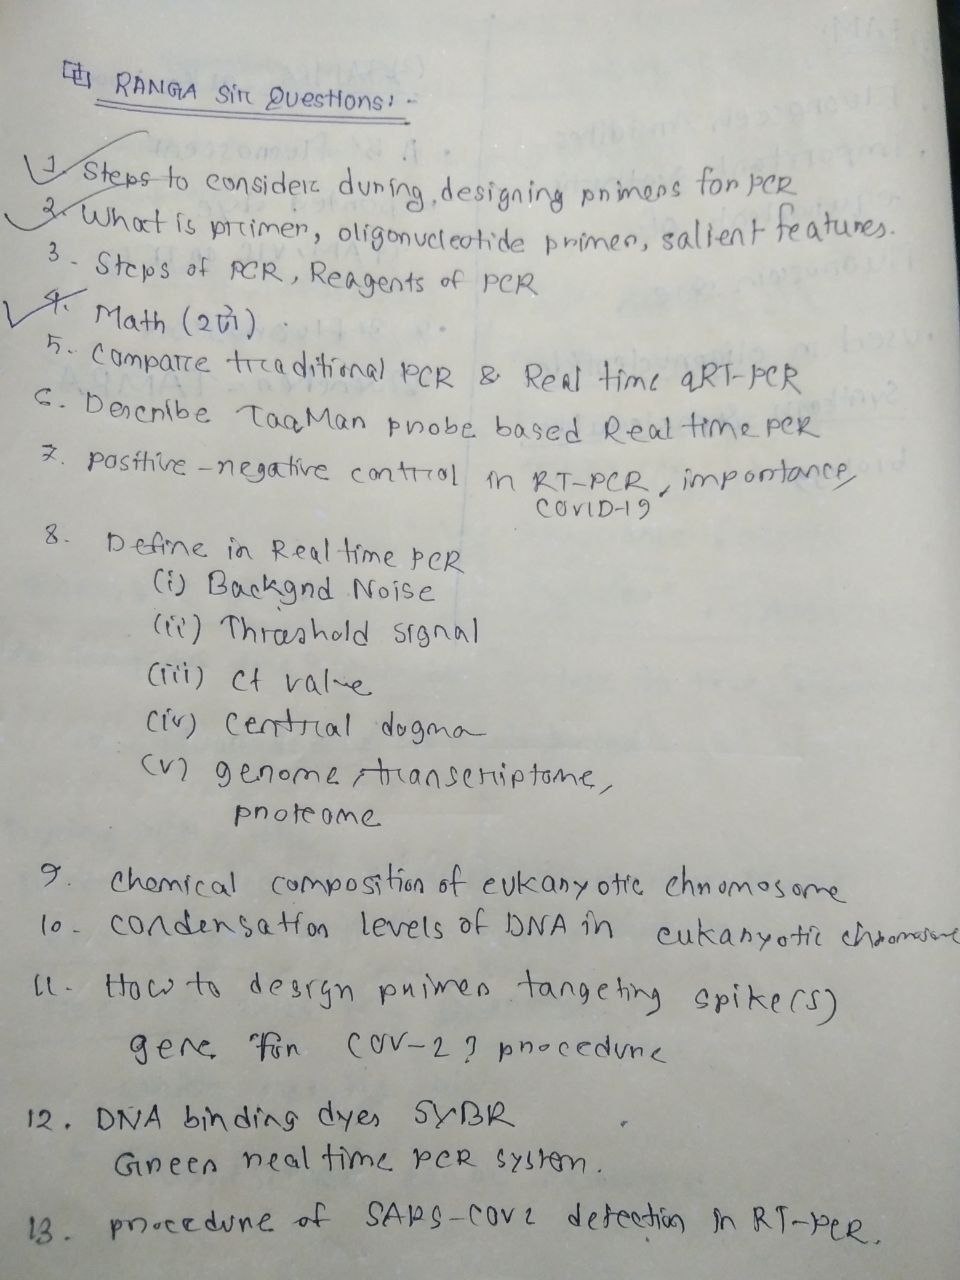 RANGA Sir Questions:-
1. Steps to consider during designing primers for PCR
2. What is primer, oligonucleotide primer, salient features.
3. Steps of PCR, Reagents of PCR
4. Math (2টা)
5. Compare traditional PCR & Real time qRT-PCR
6. Describe TaqMan probe based Real time PCR
7. positive-negative control in RT-PCR, importance,
COVID-19
8. Define in Real time PCR
(i) Backgnd Noise
(ii) Threshold signal
(iii) Ct value
(iv) Central dogma
(v) genome, transcriptome,
proteome
9. chemical composition of eukaryotic chromosome
10. condensation levels of DNA in eukaryotic chromosome
11. How to design primer targeting spike(S)
gene for COV-2? procedure
12. DNA binding dyes SYBR
Green real time PCR system.
13. procedure of SARS-COV2 detection in RT-PCR.